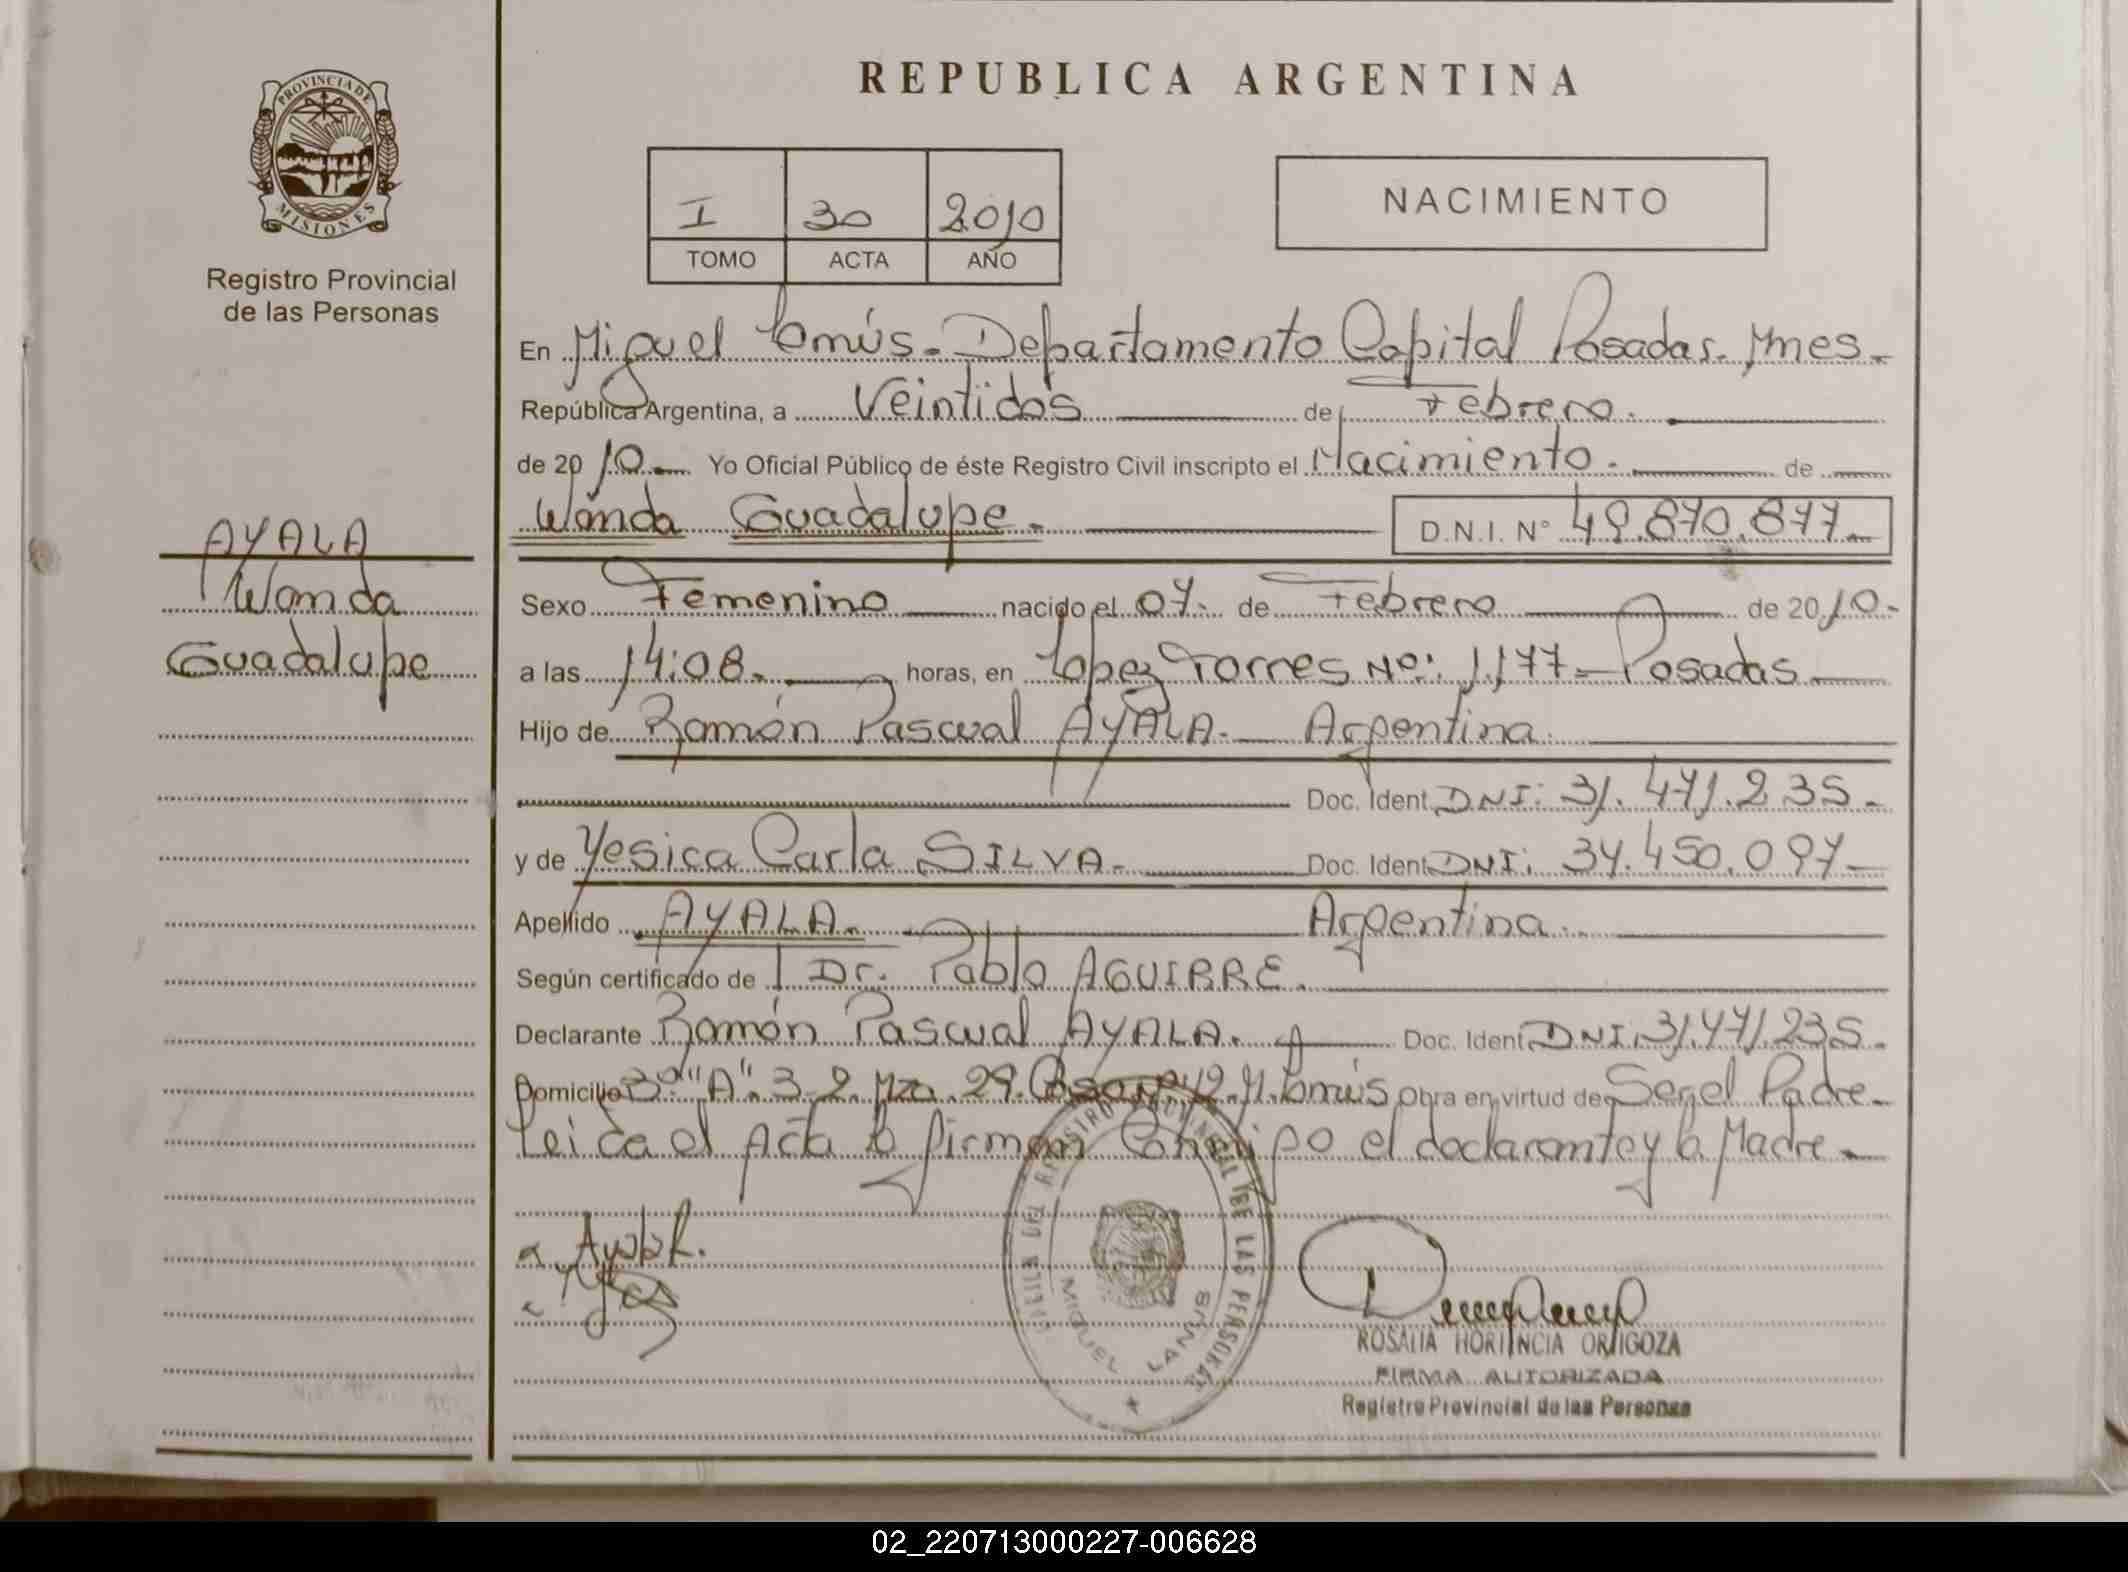 PROVINCIA DE
MISIONES
Registro Provincial
de las Personas
AYALA
Wanda
Guadalupe
REPUBLICA ARGENTINA
I 30 2010
TOMO ACTA AÑO
NACIMIENTO
En Miguel Lanús. Departamento Capital Posadas. Mnes.
República Argentina, a Veintidós de Febrero.
de 2010. Yo Oficial Público de éste Registro Civil inscripto el Nacimiento. de
Wanda Guadalupe. D.N.I. Nº 49.870.877.
Sexo Femenino nacido el 07. de Febrero de 2010.
a las 14:08. horas, en López Torres Nº: 1177 - Posadas
Hijo de Ramón Pascual AYALA. Argentina.
Doc. Ident. DNI: 31.471.235.
y de Yesica Carla SILVA. Doc. Ident. DNI: 34.450.097
Apellido AYALA. Argentina.
Según certificado de Dr. Pablo AGUIRRE.
Declarante Ramón Pascual AYALA. Doc. Ident. DNI: 31.471.235.
Domicilio 3º "A". 3-2. Mza. 29. Casa 12. M. Lanús Obra en virtud de Ser el Padre.
Leída el Acta la firman Conmigo el declarante y la Madre.
Ayala R.
REGISTRO PROVINCIAL DE LAS PERSONAS
MIGUEL LANUS
ROSALIA HORTENCIA ORTIGOZA
FIRMA AUTORIZADA
Registro Provincial de las Personas
02_220713000227-006628